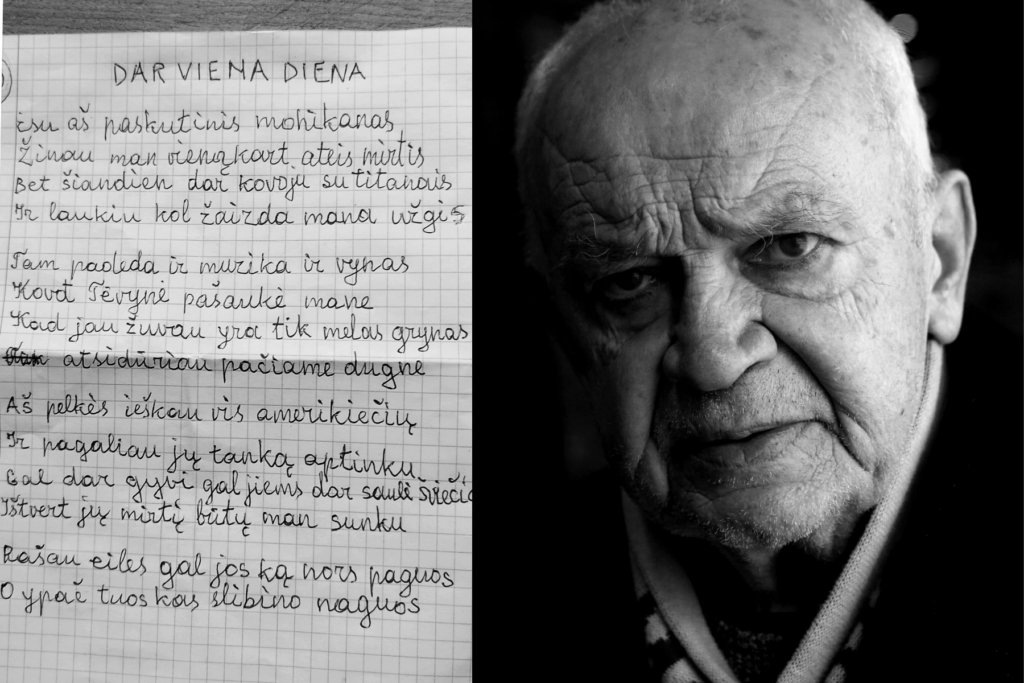 DAR VIENA DIENA
Esu aš paskutinis mohikanas
Žinau man vienąkart ateis mirtis
Bet šiandien dar kovoju su titanais
Ir laukiu kol žaizda mana užgis
Tam padeda ir muzika ir vynas
Kovot Tėvynė pašaukė mane
Kad jau žuvau yra tik melas grynas
atsidūriau pačiame dugne
Aš pelkės ieškau vis amerikiečių
Ir pagaliau jų tanką aptinku
Gal dar gyvi gal jiems dar saulė šviečia
Ištvert jų mirtį būtų man sunku
Rašau eiles gal jos ką nors paguos
O ypač tuos kas slibino naguos